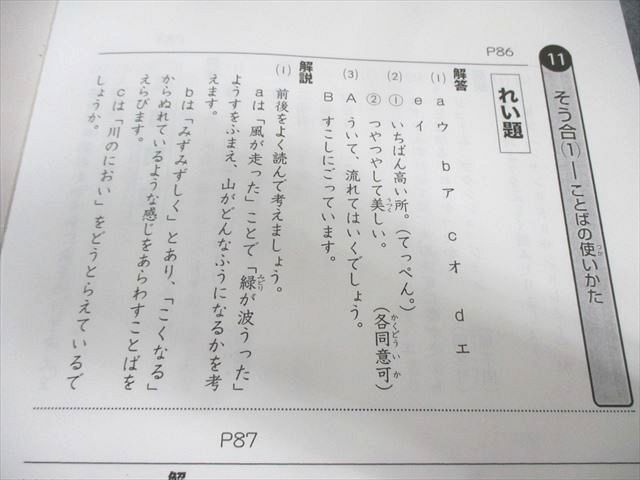 11 そう合(1)―ことばの使いかた
つか
P86
れい題
解答
(1) a ウ b ア c オ d エ
e イ
(2) ① いちばん高い所。(てっぺん。)
② つやつやして美しい。 (各同意可)
うつく
かくどういか
(3) A ういて、流れてはいくでしょう。
B すこしにごっています。
解説
(1) 前後をよく読んで考えましょう。
aは「風が走った」ことで「緑が波うった」
みどり
ようすをふまえ、山がどんなふうになるかを考
えます。
bは「みずみずしく」とあり、「こくなる」
からぬれているような感じをあらわすことばを
えらびます。
cは「川のにおい」をどうとらえているで
しょうか。
P87
解